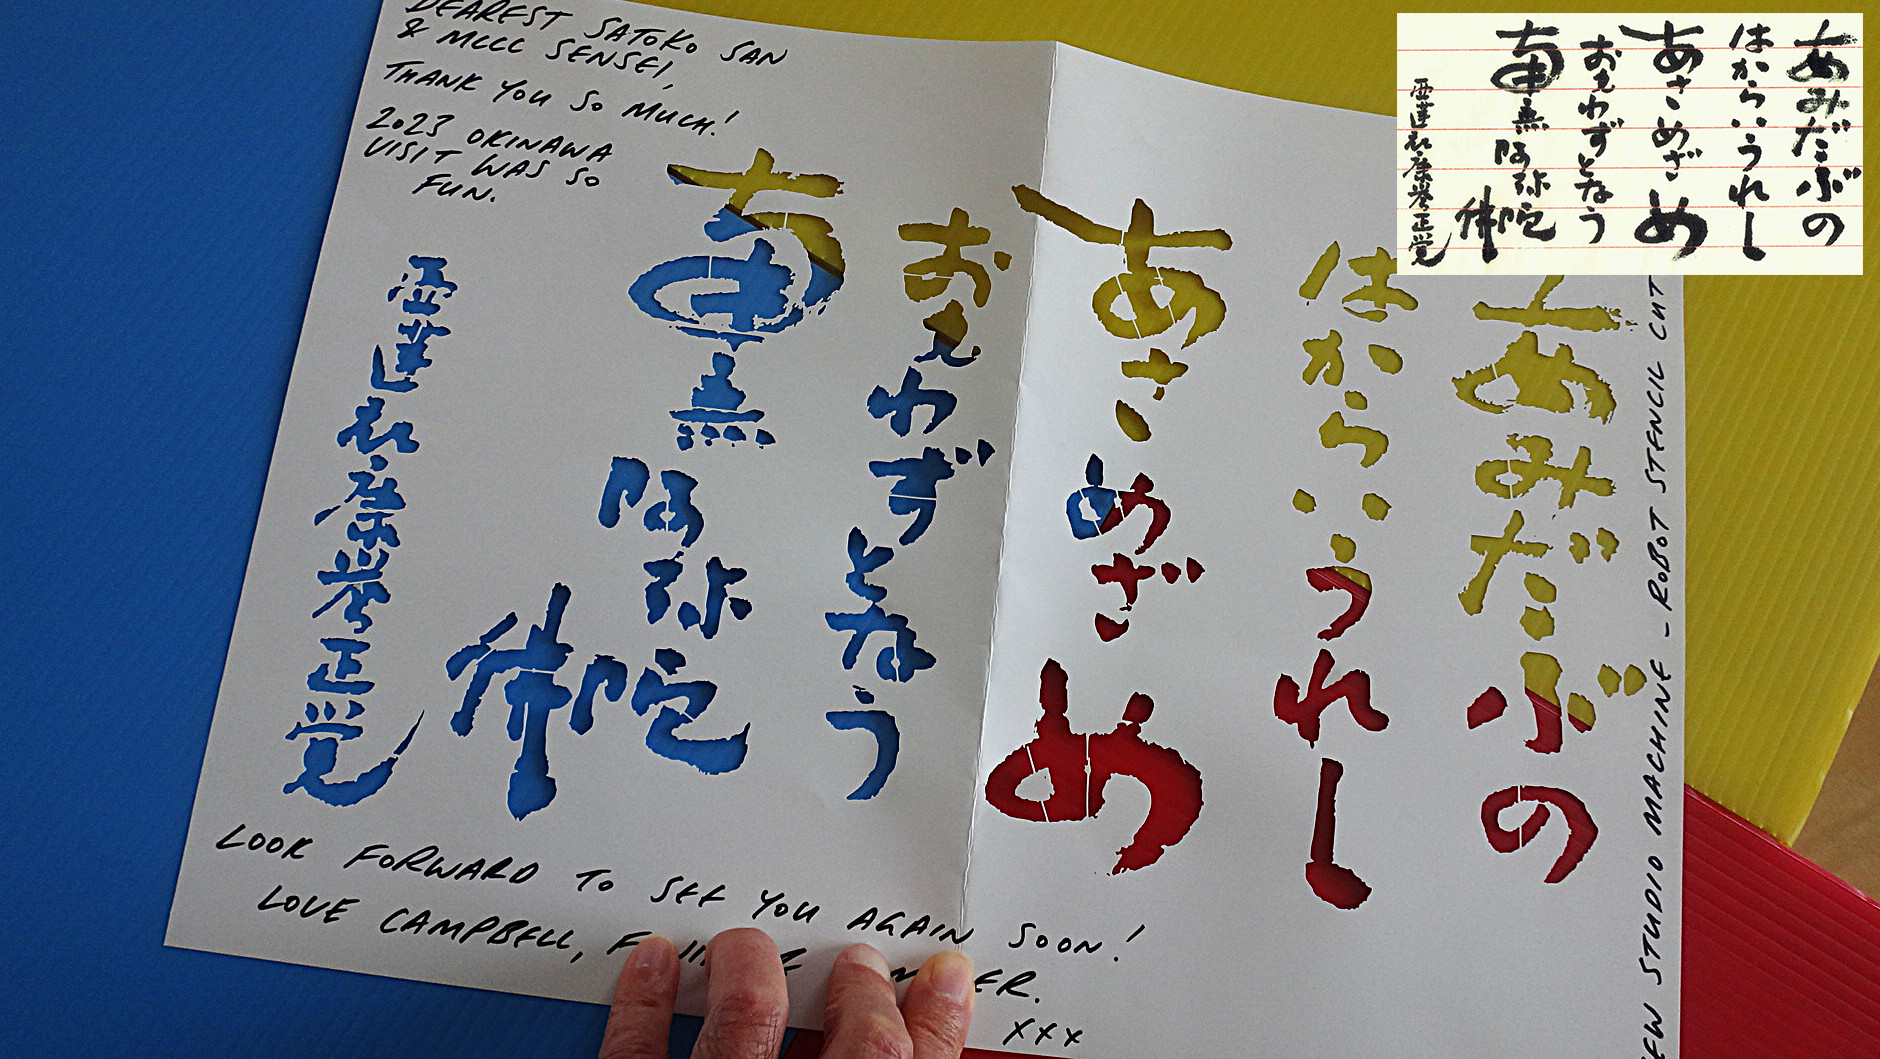 DEAREST SATOKO SAN
& MCCC SENSEI,
THANK YOU SO MUCH!
2023 OKINAWA
VISIT WAS SO
FUN.
あみだぶの
はからいうれし
あさめざめ
おもわずとなう
南無阿弥陀佛
正覚
LOOK FORWARD TO SEE YOU AGAIN SOON!
LOVE CAMPBELL,
xxx
STUDIO MACHINE - ROBOT STENCIL CUT
あみだぶの
はからいうれし
あさめざめ
おもわずとなう
南無阿弥陀佛
正覚